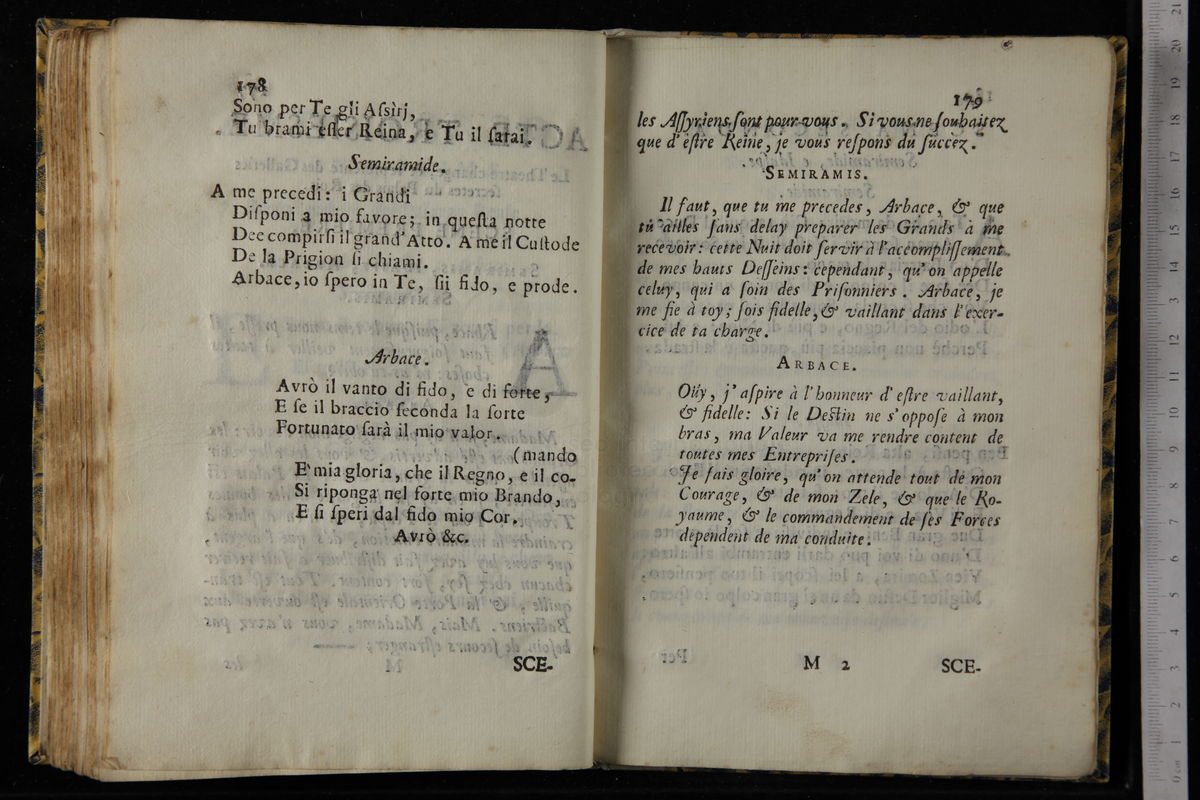 178
Sono per Te gli Aſsìrj,
Tu brami eſſer Reina, e Tu il ſarai.
Semiramide.
A me precedi: i Grandi
Diſponi a mio favore; in queſta notte
Dee compirſi il grand' Atto. A me il Cuſtode
De la Prigion ſi chiami.
Arbace, io ſpero in Te, ſii fido, e prode.
Arbace.
Avrò il vanto di fido, e di forte,
E ſe il braccio ſeconda la ſorte
Fortunato ſarà il mio valor.
(mando
E' mia gloria, che il Regno, e il co-
Si riponga nel forte mio Brando,
E ſi ſperi dal fido mio Cor.
Avrò &c.
SCE-
179
les Aſſyriens ſont pour vous. Si vous ne ſouhaitez
que d'eſtre Reine, je vous reſpons du ſuccèz.
SEMIRAMIS.
Il faut, que tu me precedes, Arbace, & que
tû ailles ſans delay preparer les Grands à me
recevoir: cette Nuit doit ſervir à l'accompliſſement
de mes hauts Deſſeins: cependant, qu'on appelle
celuy, qui a ſoin des Priſonniers. Arbace, je
me fie à toy; ſois fidelle, & vaillant dans l'exer-
cice de ta charge.
ARBACE.
Oüy, j'aſpire à l'honneur d'eſtre vaillant,
& fidelle: Si le Deſtin ne s'oppoſe à mon
bras, ma Valeur va me rendre content de
toutes mes Entrepriſes.
Je fais gloire, qu'on attende tout de mon
Courage, & de mon Zele, & que le Ro-
yaume, & le commandement de ſes Forces
dependent de ma conduite.
M 2
SCE-